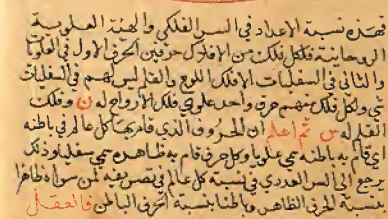 فهذه نسبة الاعداد في السر الفلكي والهيئة العلوية
الروحانية فلكل فلك من الافلاك حرفين الحرف الاول في العلويا
والثاني في السفليات الافلك اللوح والقلم ليس لهم في السفليات
شي ولكل فلك منهم حرف واحد علوي فلك الارواح له ن وفلك
القلم له س ثم اعلم ان الحروف الذي قام بها كل عالم في باطنه
اي قام به باطنه سمي علويا وكل حرف قام به ظاهره سمي سفليا وذلك
يرجع الى السر العددي في نسبة كل عالم في تصريفه لمن سواه ظاهرا
بنسبة الحرف الظاهر وباطنا بنسبة الحرف الباطن فالعقل